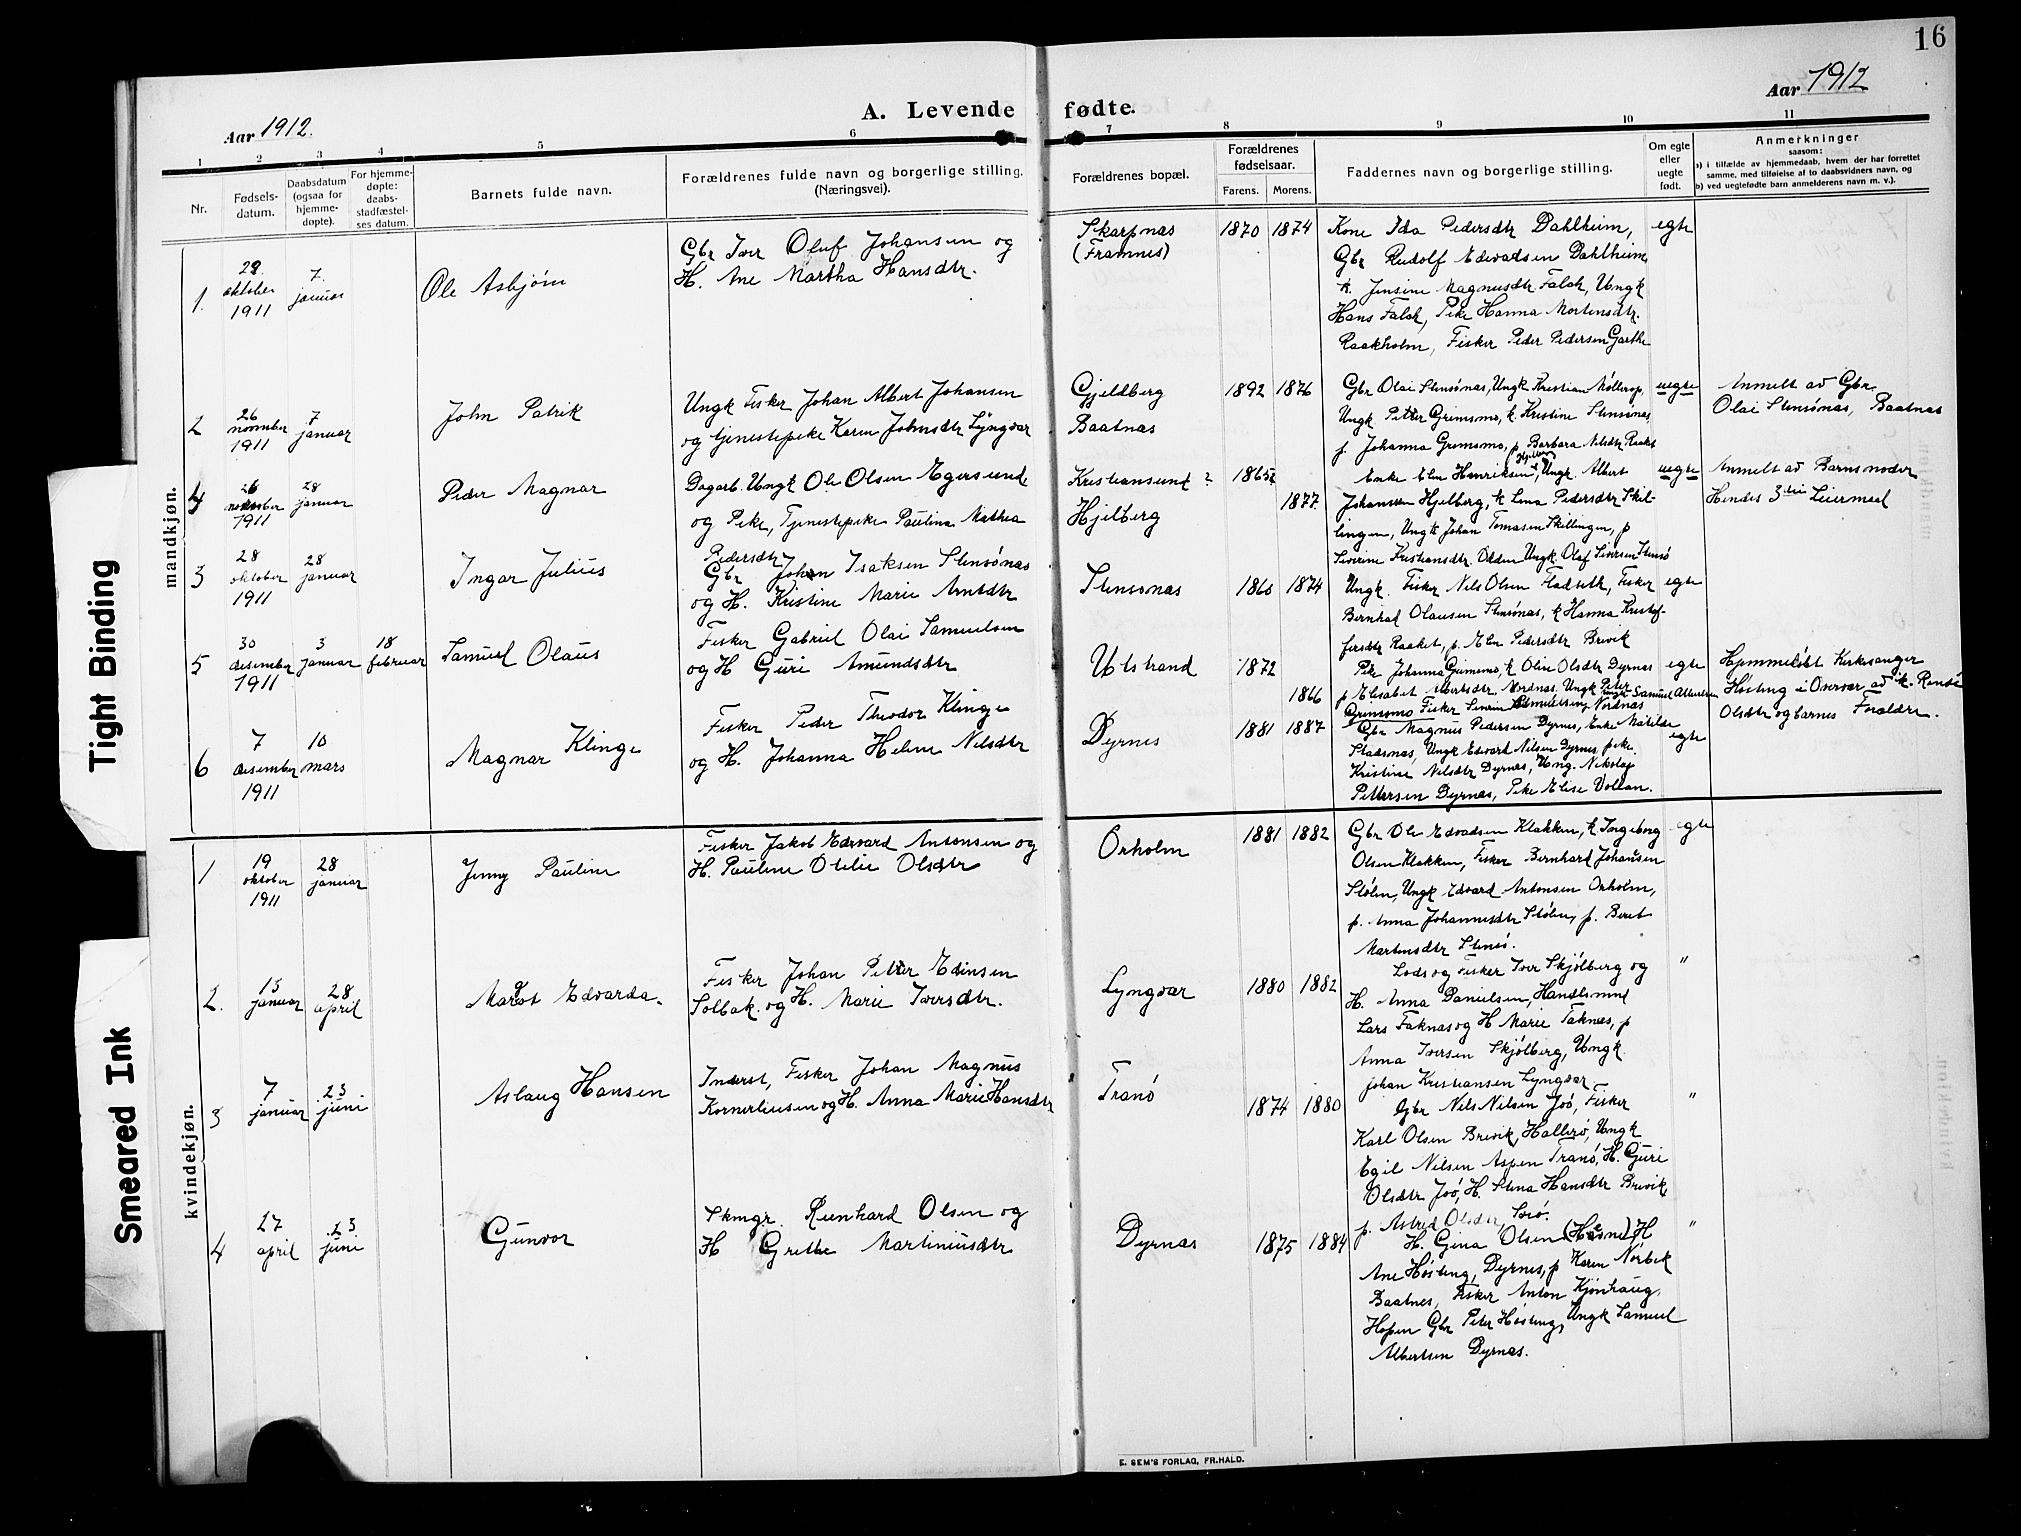 16
Aar 1912.
A. Levende fødte.
Aar 1912
1 2 3 4 5 6 7 8 9 10 11
Nr.
Fødsels-
datum.
Daabsdatum
(ogsaa for
hjemme-
døpte).
For hjemme-
døpte:
daabs-
stadfæstel-
ses datum.
Barnets fulde navn.
Forældrenes fulde navn og borgerlige stilling.
(Næringsvei).
Forældrenes bopæl.
Forældrenes
fødselsaar.
Farens. Morens.
Faddernes navn og borgerlige stilling.
Om egte
eller
uegte
født.
Anmerkninger
saasom:
a) i tilfælde av hjemmedaab, hvem der har forrettet
samme, med tilføielse af to daabsvidners navn, og
b) ved uegtefødte barn anmelderens navn m. v.).
mandkjøn.
1.
oktober
1911
7.
januar
Ole Asbjørn
Gbr Iver Oluf Johansen og
H. Ane Martha Hansdtr.
Skarpnas
(Framnes)
1870 1874
Kone Ida Pedersdtr Dahlheim,
Gbr Rudolf Edvadsen Dahlheim
k. Jensine Magnusdtr Falch, Ungk
Hans Falch, Pike Hanna Mortensdtr.
Raakholm, Fisker Peder Pedersen Garthe
egte
2
26
november
1911
7
januar
John Patrik
Ungk Fisker Johan Albert Johansen
og tjenestepike Karen Johnsdtr Lyngvar
Gjeldberg
Baatnas
1892 1876
Gbr Olai Stensønas, Ungk Kristian Møllerop,
Ungk Petter Grimsmo, k. Kristine Stensønas,
p. Johanna Grimsmo, p Barbara Nilsdtr Raaket
uegte
Anmelt av Gbr.
Olai Stensønas, Baatnas
4
26
1911
28
januar
Peder Magnar
Dagarb. Ungk Ole Olsen Egersund
og Pike, Tjenestepike Paulina Mathea
Pedersdtr
Kristiansund ?
Hjelberg
1865?
1877.
Enke Elen Henriksen, Ungk. Albert
Johansen Hjelberg, k Lina Pedersdtr Skil-
lingen, Ungk Johan Tomasen Skillingen, p
Siverine Kristiansdtr. Olden Ungk. Olaf Siversen Stensø
uegte
Anmelt av Barnsmoder
Hendes 3die Leiermaal
3
28
oktober
1911
28
januar
Ingar Julius
Gbr Johan Isaksen Stensønas
og H. Kristine Marie Arntdtr
Stensønas
1860 1874
Ungk. Fisker Nils Olsen Fladseth, Fisker
Bernhad Olausen Stensønas, k Hanna Kristof-
fersdtr Raaket, p. Elen Pedersdtr Brevik
egte
5
30
desember
1911
3
januar
18
februar
Samuel Olaus
Fisker Gabriel Olai Samuelsen
og H Guri Amundsdtr
Utstrand
1872
1866
Pike Johanna Grimsmo, k Olin Olsdtr Dyrnas
p Elisabet Albertsdtr Nordnas Ungk Peter
Ungk Samuel Albertsen
Grimsmo Fisker Severin Samuelsen, Nordnas
egte
Hjemmeløbt Kirkesanger
Høsteng i Overvær av k. Rensi
Olsdtr og barnes Foraldre.
6
7
desember
1911
10
mars
Magnar Klinge
Fisker Peder Theodor Klinge
og H. Johanna Helene Nilsdtr
Dyrnes
1881 1887
Gbr Magnus Pedersen Dyrnes, Enke Matilde
Stadsnas, Ungk Edvard Nilsen Dyrnes, pike
Kristine Nilsdtr Dyrnas, Ung. Nikolai
Pettersen Dyrnas, Pike Elise Vollan.
egte
kvindekjøn.
1
19
oktober
1911
28
januar
Jenny Pauline
Fisker Jakob Edvard Antonsen og
H. Pauline Otilie Olsdtr
Orholm
1881 1882
Gbr Ole Edvadsen Klakken, k Ingeborg
Olsen Klakken, Fisker Bernhard Johansen
Stølen, Ungk Edvard Antonsen Orholm,
p. Anna Johannesdtr Stølen, p. Beret
Martensdtr Stensø.
egte
2.
13
januar
28
april
Margot Edvarda.
Fisker Johan Petter Edinsen
Solbak. og H. Marie Iversdtr.
Lyngvar
1880 1882
Lods og Fisker Iver Skjølberg og
H. Anna Danielsen, Handlsmnd
Lars Taknas og H Marie Taknas, p
Anna Iversen Skjølberg, Ungk.
Johan Kristiansen Lyngvar
"
3
7
januar
23
juni
Aslaug Hansen
Inderst, Fisker Johan Magnus
Korneliusen og H. Anna Marie Hansdtr
Tranø
1874 1880
Gbr Nils Nilsen Joø, Fisker
Karl Olsen Brevik, Hallerø, Ungk
Egil Nilsen Aspen Tranø, H. Guri
Olsdtr Joø, H. Stina Hansdtr Brevik,
p. Astrid Olsdtr,
"
4
27
april
23
juni
Gunvor
Skmgr. Reinhard Olsen og
H Grethe Martiniusdtr
Dyrnas
1875 1884
H. Gina Olsen (Hasnes) H
Ane Høsteng, Dyrnes, p Karen Nørbek
Baatnes, Fisker Anton Kjønhaug,
Hopen Gbr Peter Høsteng, Ungk Samuel
Albertsen Dyrnas.
"
E. SEM'S FORLAG, FR.HALD.
Tight Binding
Smeared Ink